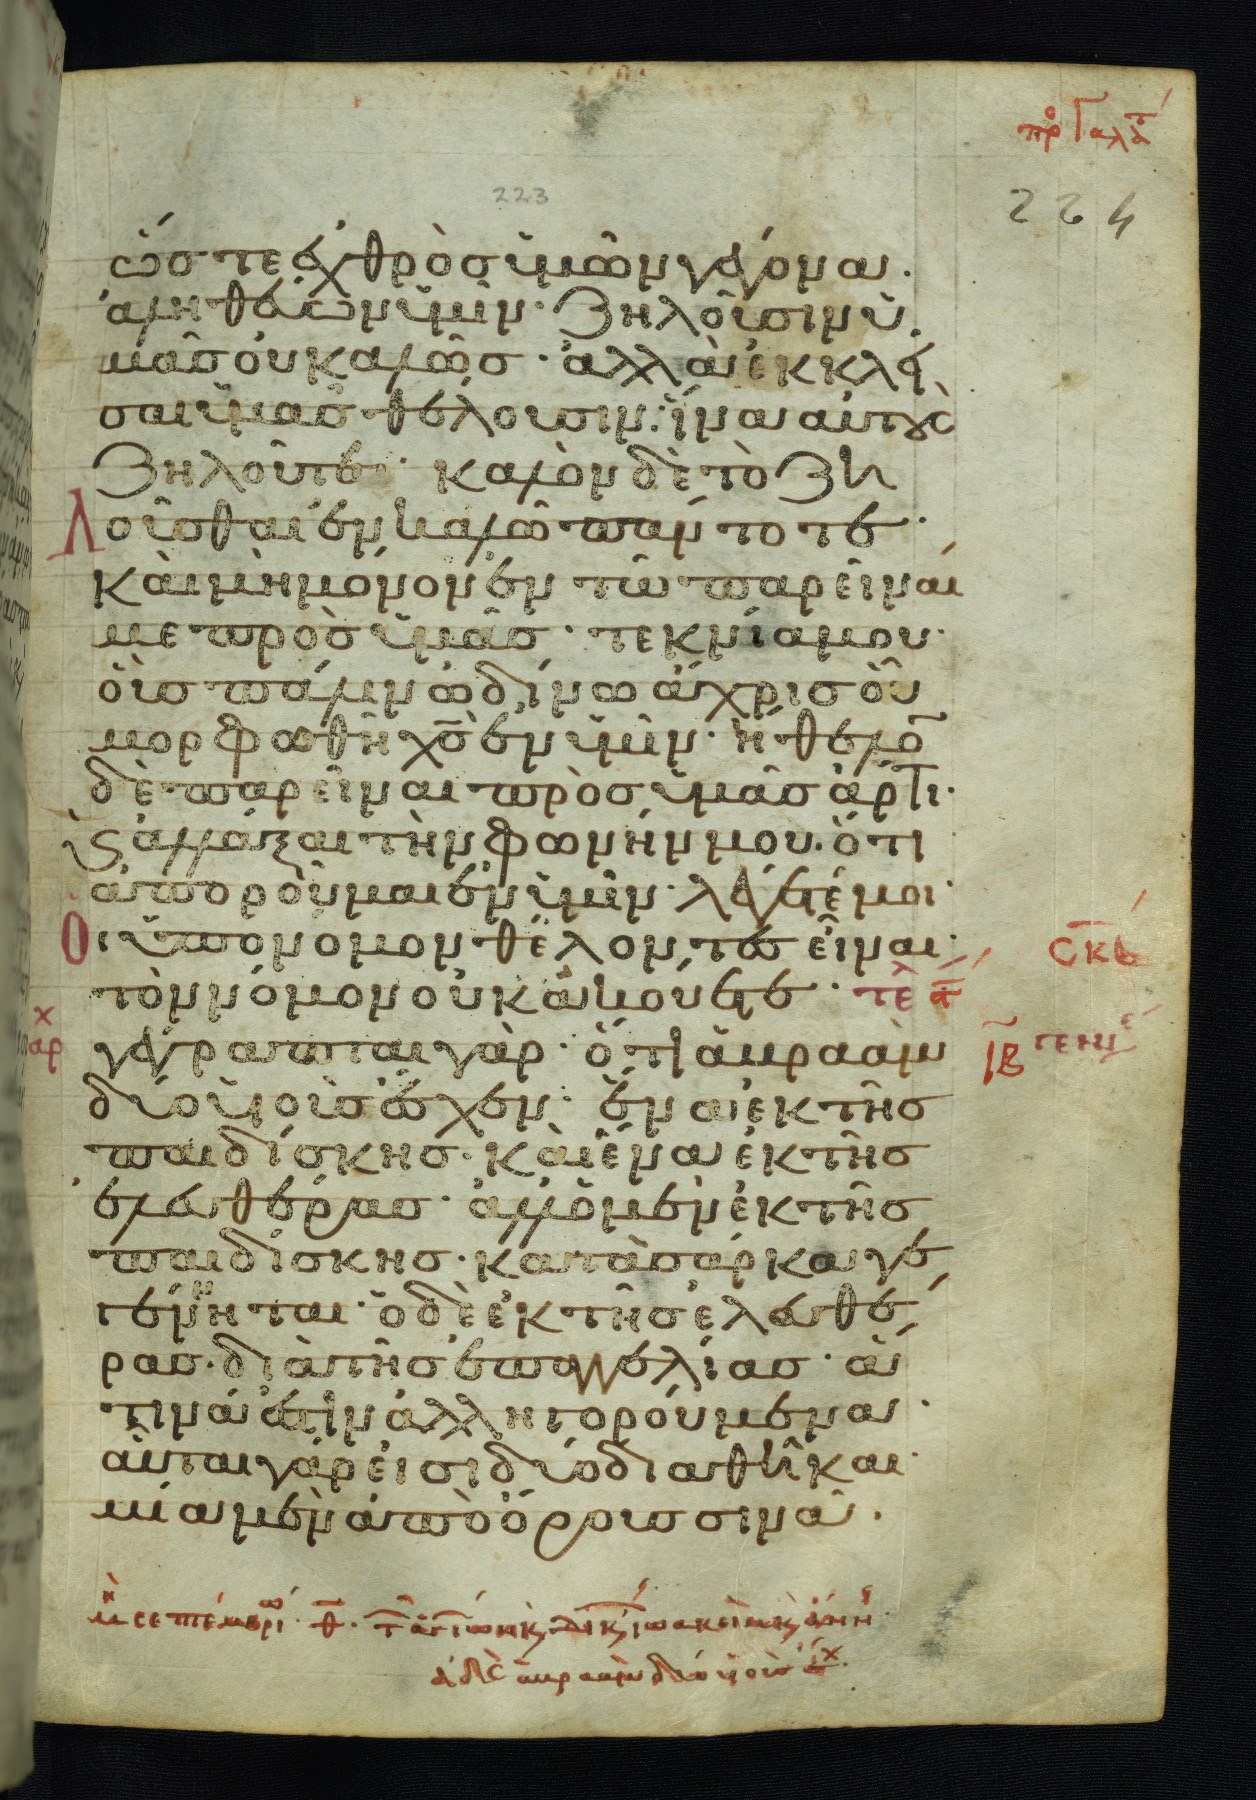 πρ Γαλατ
224
223
ὥστε ἐχθρὸς ὑμῶν γέγονα.
ἀληθεύων ὑμῖν· Ζηλοῦσιν ὑ
μᾶς οὐ καλῶς· ἀλλὰ ἐκκλεῖ
σαι ὑμᾶς θέλουσιν· ἵνα αὐτοὺς
Ζηλοῦτε· καλὸν δὲ τὸ Ζη
λοῦσθαι ἐν καλῶ πάντοτε·
καὶ μὴ μόνον ἐν τῶ παρεῖναί
με πρὸς ὑμᾶς· τεκνία μου·
οὓς πάλιν ὠδίνω ἄχρις οὗ
μορφωθῆ χς ἐν ὑμῖν· ἤθελο
δὲ παρεῖναι πρὸς ὑμᾶς ἄρτι·
ϗ ἀλλάξαι τὴν φωνήν μου· ὅτι
ἀποροῦμαι ἐν ὑμῖν· λέγετέ μοι·
Οἱ ὑπὸ νόμον θέλοντες εἶναι·
σκε
τὸν νόμον οὐκ ἀκούετε· τε
αρχ γέγραπται γὰρ· ὅτι ἀβραὰμ
ΙΒ
δύο υἱοὺς ἔσχεν· ἕνα ἐκ τῆς
παιδίσκης· καὶ ἕνα ἐκ τῆς
ἐλευθέρας· ἀλλ' ὁ μὲν ἐκ τῆς
παιδίσκης· κατὰ σάρκα γε
γένηται· ὁ δὲ ἐκ τῆς ἐλευθέ
ρας· διὰ τῆς ἐπαγγελίας· ἅ
τινά ἐστιν ἀλληγορούμενα·
αὗται γάρ εἰσι δύο διαθῆκαι·
μία μὲν ἀπὸ ὄρους σινᾶ·
μ σεπτεμβρι· θ· τ ἁγίων ϗ δικ ἰωακεὶμ ϗ ἄννη·
ἀδε ἀβραὰμ δύο υἱοὺς εχ·